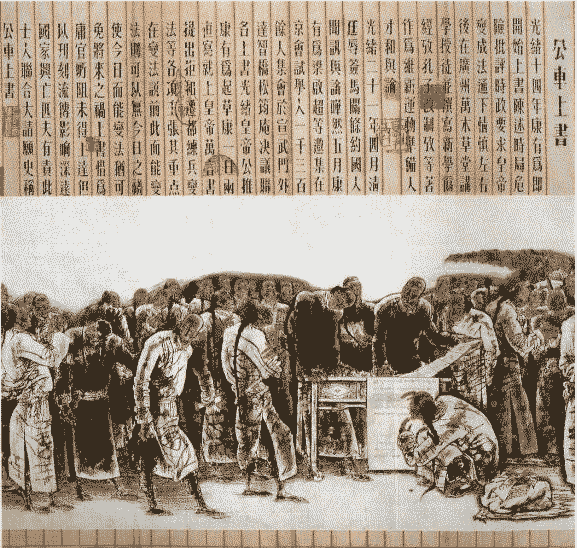 公車上書
光緒十四年康有為即
開始上書陳述時局危
險批評時政要求皇帝
變成法通下情慎左右
後在廣州萬木草堂講
學授徒並撰寫新學偽
經攷孔子改制攷等著
作為維新運動人
才和輿論
光緒二十一年四月清
廷辱簽馬關條約國人
聞訊輿論譁然五月康
有為梁啟超等邀集在
京會試舉人一千三百
餘人集會於宣武門外
達智橋松筠庵決議聯
名上書光緒皇帝公推
康有為起草康一日兩
夜寫就上皇帝萬言書
提出拒和遷都練兵變
法等各項主張其重點
在變法認前此而能變
法則可以無今日之禍
使今日而能變法猶可
免將來之禍上書惜為
庸官所阻未得上達但
以刊刻流傳影響深遠
國家興亡匹夫有責此
士人聯合大請願史稱
公車上書